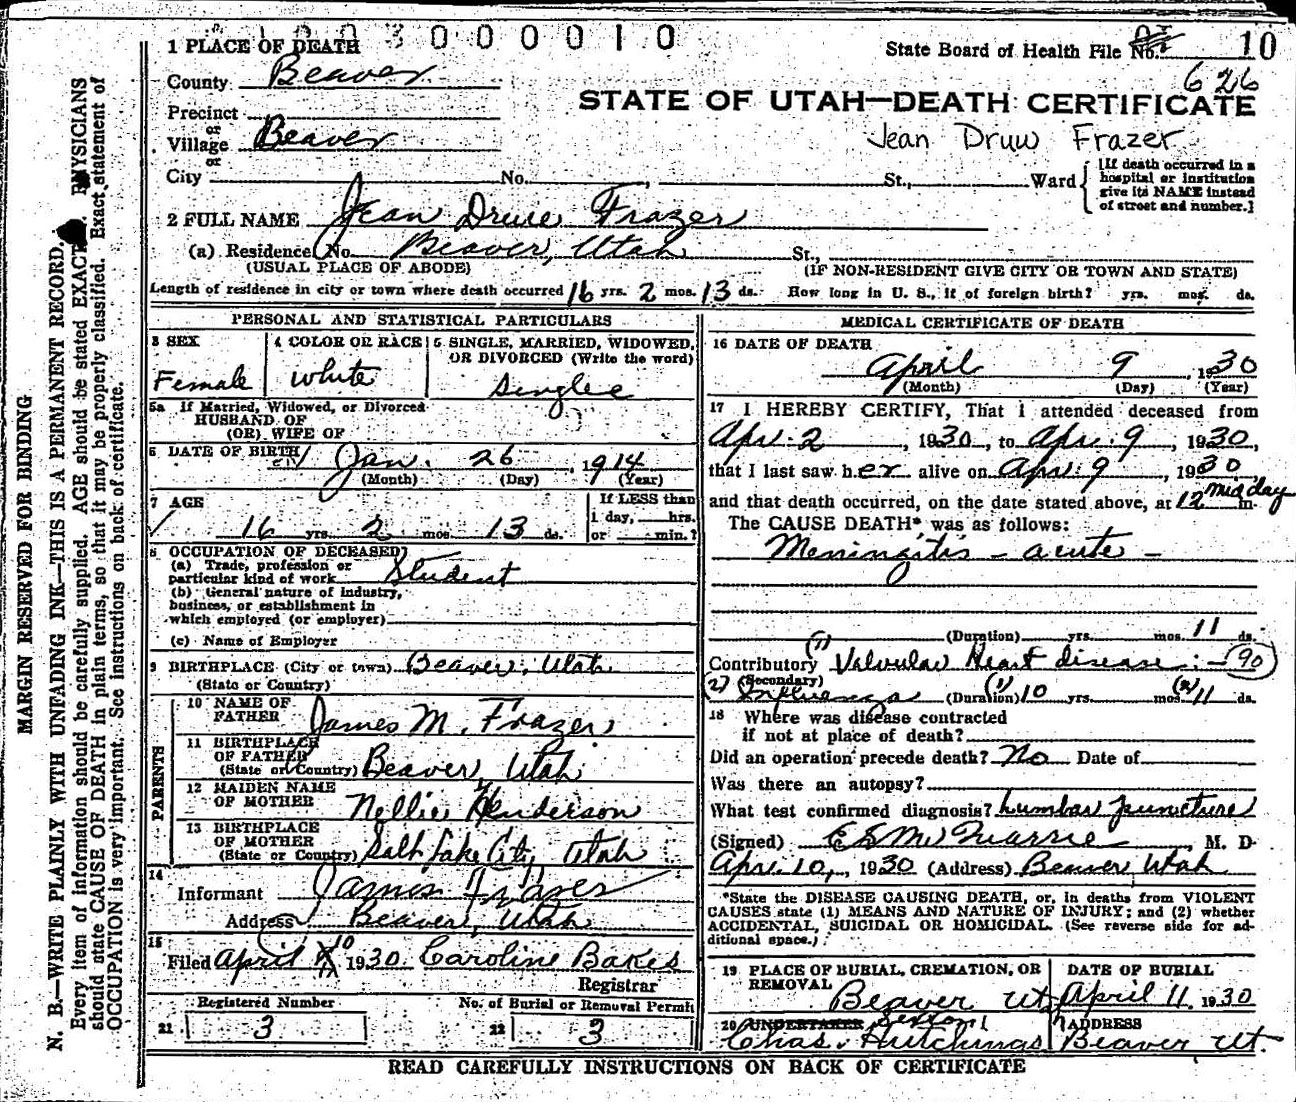 3000010
1 PLACE OF DEATH
State Board of Health File No. 10
County Beaver
626
STATE OF UTAH—DEATH CERTIFICATE
Precinct
or
Village Beaver
Jean Druw Frazer
or
City No. , St., Ward
[If death occurred in a hospital or institution give its NAME instead of street and number.]
2 FULL NAME Jean Druw Frazer
(a) Residence No. Beaver, Utah St.,
(USUAL PLACE OF ABODE) (IF NON-RESIDENT GIVE CITY OR TOWN AND STATE)
Length of residence in city or town where death occurred 16 yrs. 2 mos. 13 ds. How long in U. S., if of foreign birth? yrs. mos. ds.
PERSONAL AND STATISTICAL PARTICULARS
3 SEX Female
4 COLOR OR RACE white
5 SINGLE, MARRIED, WIDOWED, OR DIVORCED (Write the word)
Single
5a If Married, Widowed, or Divorced
HUSBAND OF
(OR) WIFE OF
6 DATE OF BIRTH Jan. 26, 1914
(Month) (Day) (Year)
7 AGE
16 yrs. 2 mos. 13 ds.
If LESS than
1 day, hrs.
or min.?
8 OCCUPATION OF DECEASED
(a) Trade, profession or
particular kind of work Student
(b) General nature of industry,
business, or establishment in
which employed (or employer)
(c) Name of Employer
9 BIRTHPLACE (City or town) Beaver, Utah
(State or Country)
PARENTS
10 NAME OF
FATHER James M. Frazer
11 BIRTHPLACE
OF FATHER
(State or Country) Beaver, Utah
12 MAIDEN NAME
OF MOTHER Nellie Henderson
13 BIRTHPLACE
OF MOTHER
(State or Country) Salt Lake City, Utah
14
Informant James Frazer
Address Beaver, Utah
15
Filed April 10 1930 Caroline Bakes
Registrar
Registered Number
21 3
No. of Burial or Removal Permit
22 3
MEDICAL CERTIFICATE OF DEATH
16 DATE OF DEATH
April 9, 1930
(Month) (Day) (Year)
17 I HEREBY CERTIFY, That I attended deceased from
Apr. 2, 1930, to Apr. 9, 1930,
that I last saw her alive on Apr. 9, 1930
and that death occurred, on the date stated above, at 12 midday m.
The CAUSE DEATH* was as follows:
Meningitis - acute -
(Duration) yrs. mos. 11 ds.
Contributory (1) Valvular Heart disease :- 90
(Secondary)
(2) Influenza (Duration) (1) 10 yrs. mos. (2) 11 ds.
18 Where was disease contracted
if not at place of death?
Did an operation precede death? No Date of
Was there an autopsy?
What test confirmed diagnosis? Lumbar puncture
(Signed) , M. D.
Apr. 10, 1930 (Address) Beaver, Utah
*State the DISEASE CAUSING DEATH, or, in deaths from VIOLENT
CAUSES state (1) MEANS AND NATURE OF INJURY; and (2) whether
ACCIDENTAL, SUICIDAL OR HOMICIDAL. (See reverse side for ad-
ditional space.)
19 PLACE OF BURIAL, CREMATION, OR
REMOVAL
Beaver Ut.
DATE OF BURIAL
April 11, 1930
20 UNDERTAKER Sexton
Chas. Hutchings
ADDRESS
Beaver Ut.
READ CAREFULLY INSTRUCTIONS ON BACK OF CERTIFICATE
MARGIN RESERVED FOR BINDING
N. B.—WRITE PLAINLY WITH UNFADING INK—THIS IS A PERMANENT RECORD.
Every item of information should be carefully supplied. AGE should be stated EXACTLY. PHYSICIANS
should state CAUSE OF DEATH in plain terms, so that it may be properly classified. Exact statement of
OCCUPATION is very important. See instructions on back of certificate.